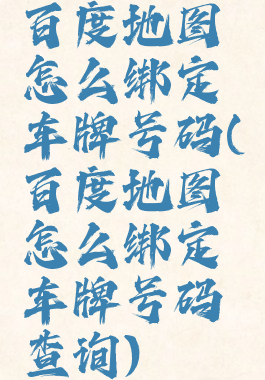 百度地图
怎么绑定
车牌号码(
百度地图
怎么绑定
车牌号码
查询)